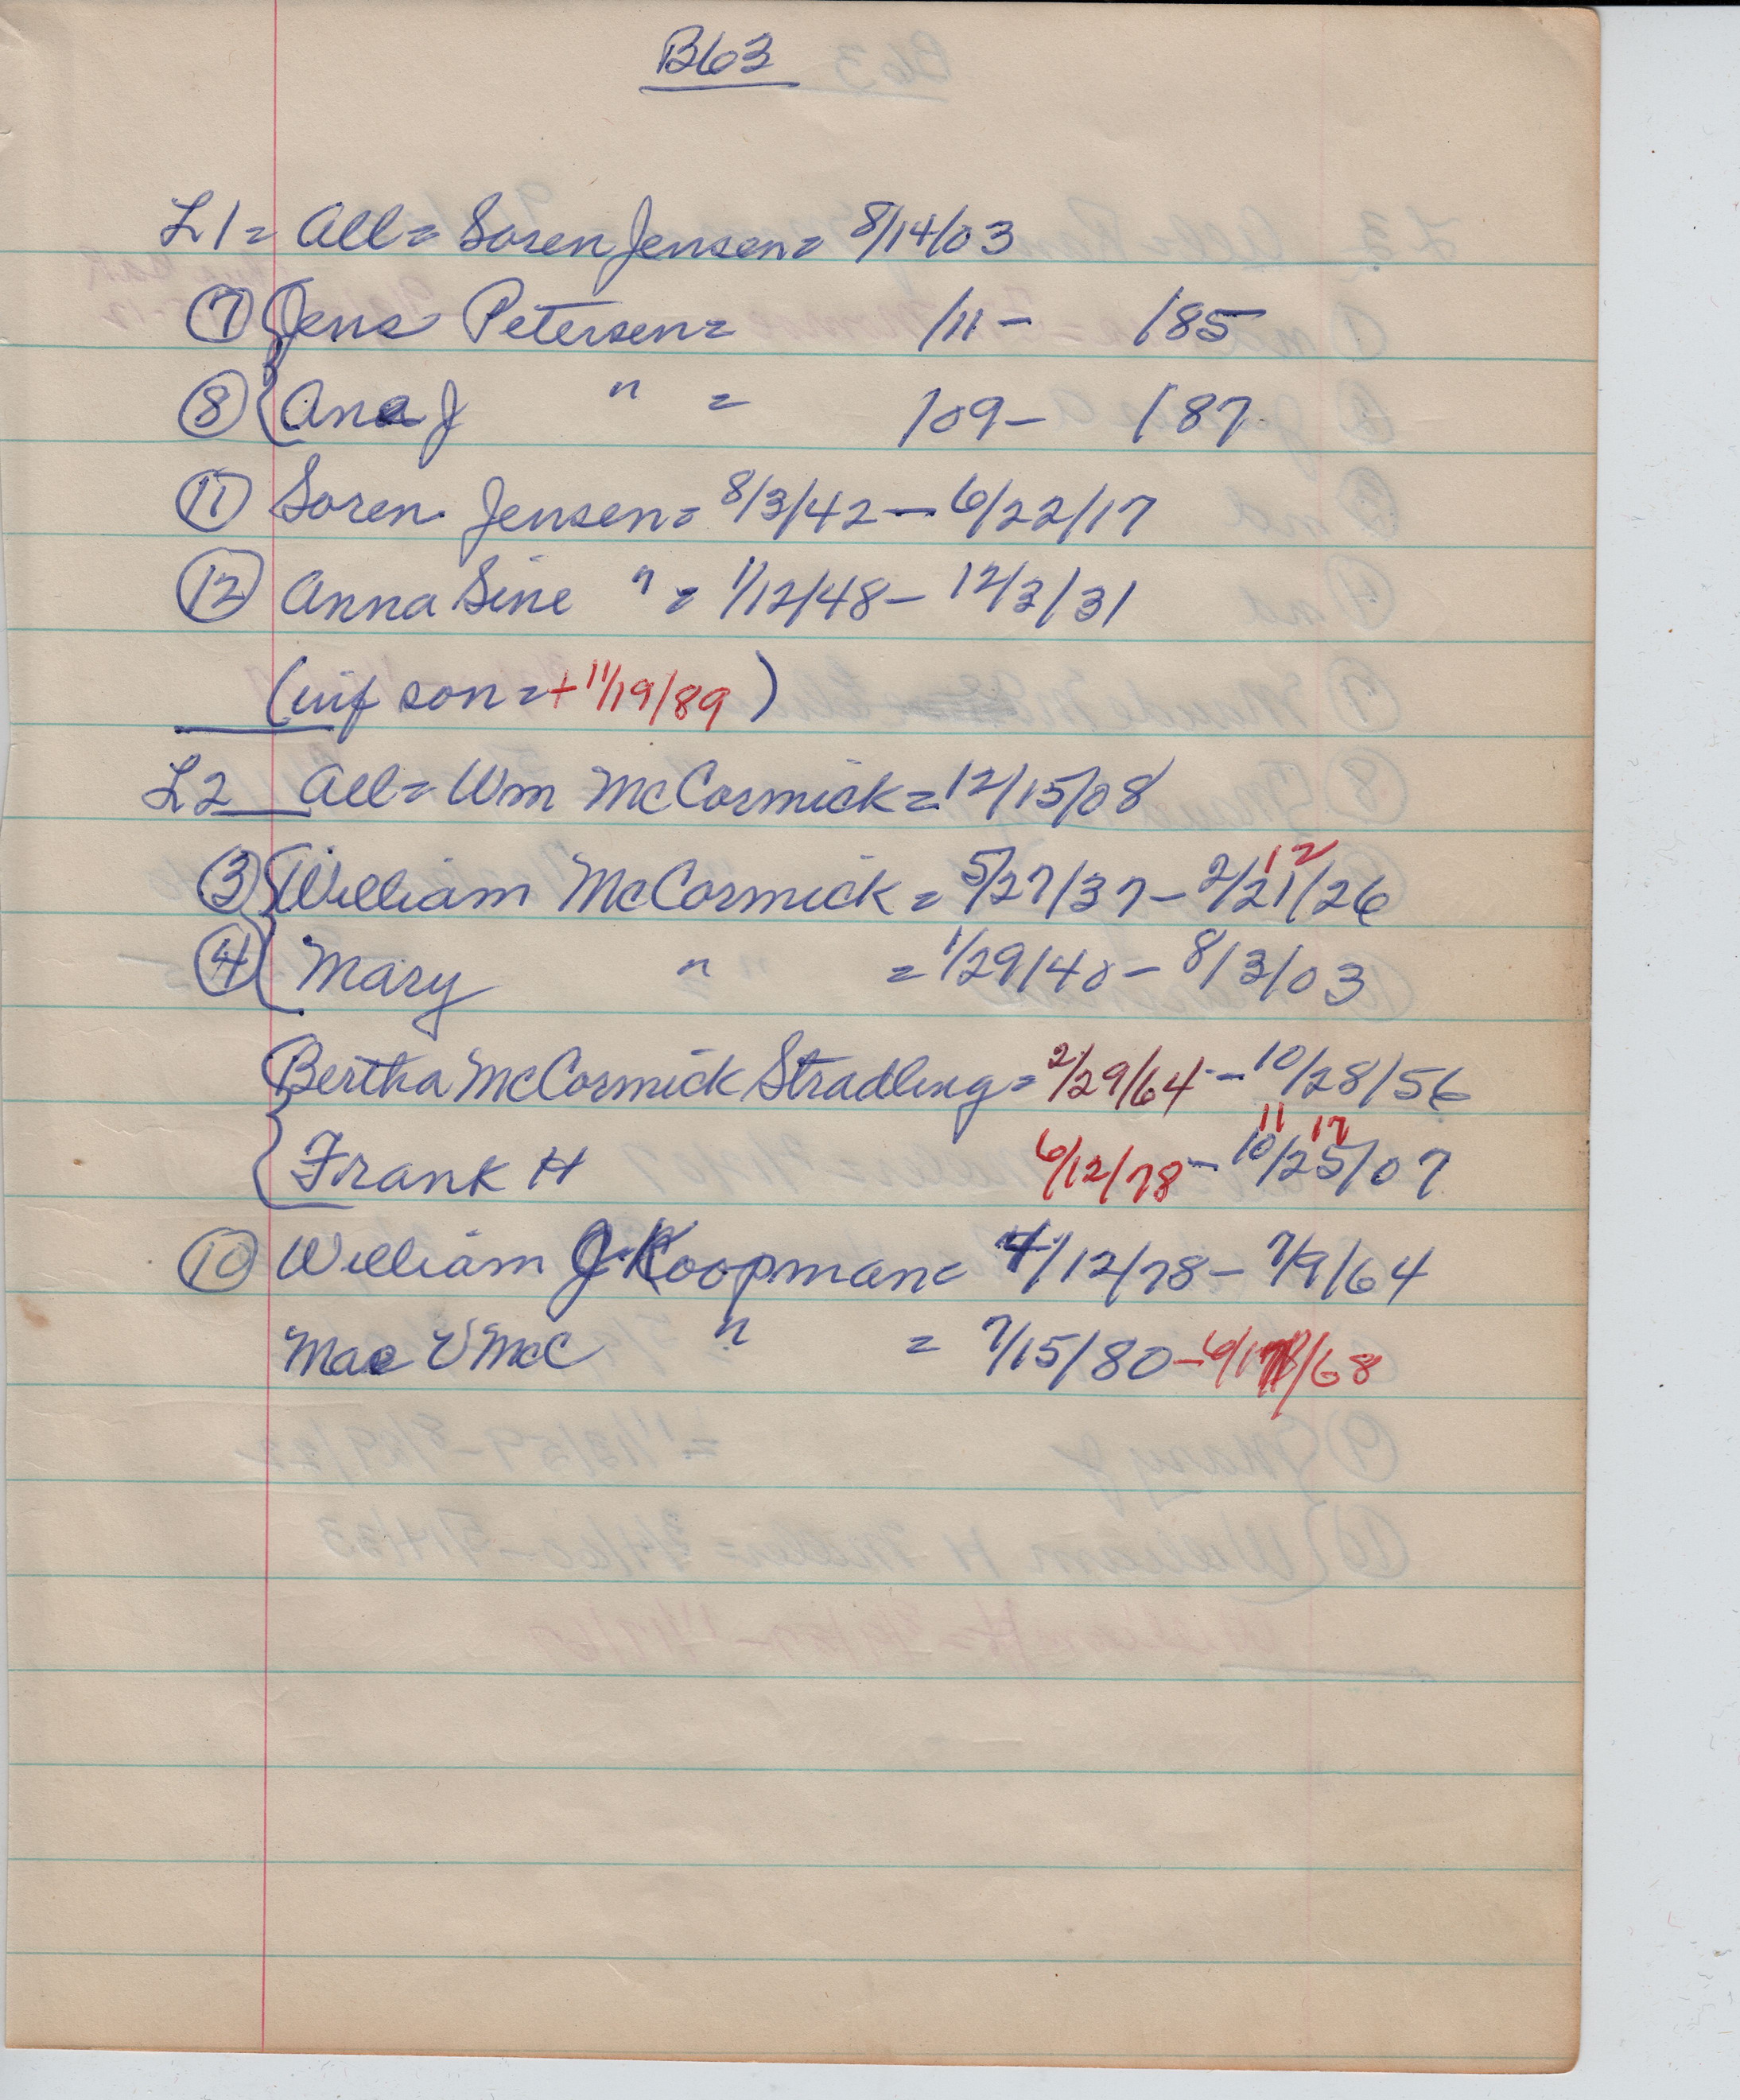 B63
L1 = All = Soren Jensen = 8/14/03
7 Jens Petersen = /11 - /85
8 Ana J " = /09 - /87
11 Soren Jensen = 8/3/42 - 6/22/17
12 Anna Sine " = 1/12/48 - 12/3/31
(inf son = + 11/19/89)
L2 All = Wm McCormick = 12/15/08
12
3 William McCormick = 5/27/37 - 2/21/26
4 Mary " = 1/29/40 - 8/3/03
Bertha McCormick Stradling = 2/29/64 - 10/28/56
11 17
Frank H 6/12/78 - 10/25/07
10 William J Koopman = 4/12/78 - 7/9/64
Mae V McC " = 7/15/80 - 6/ /68